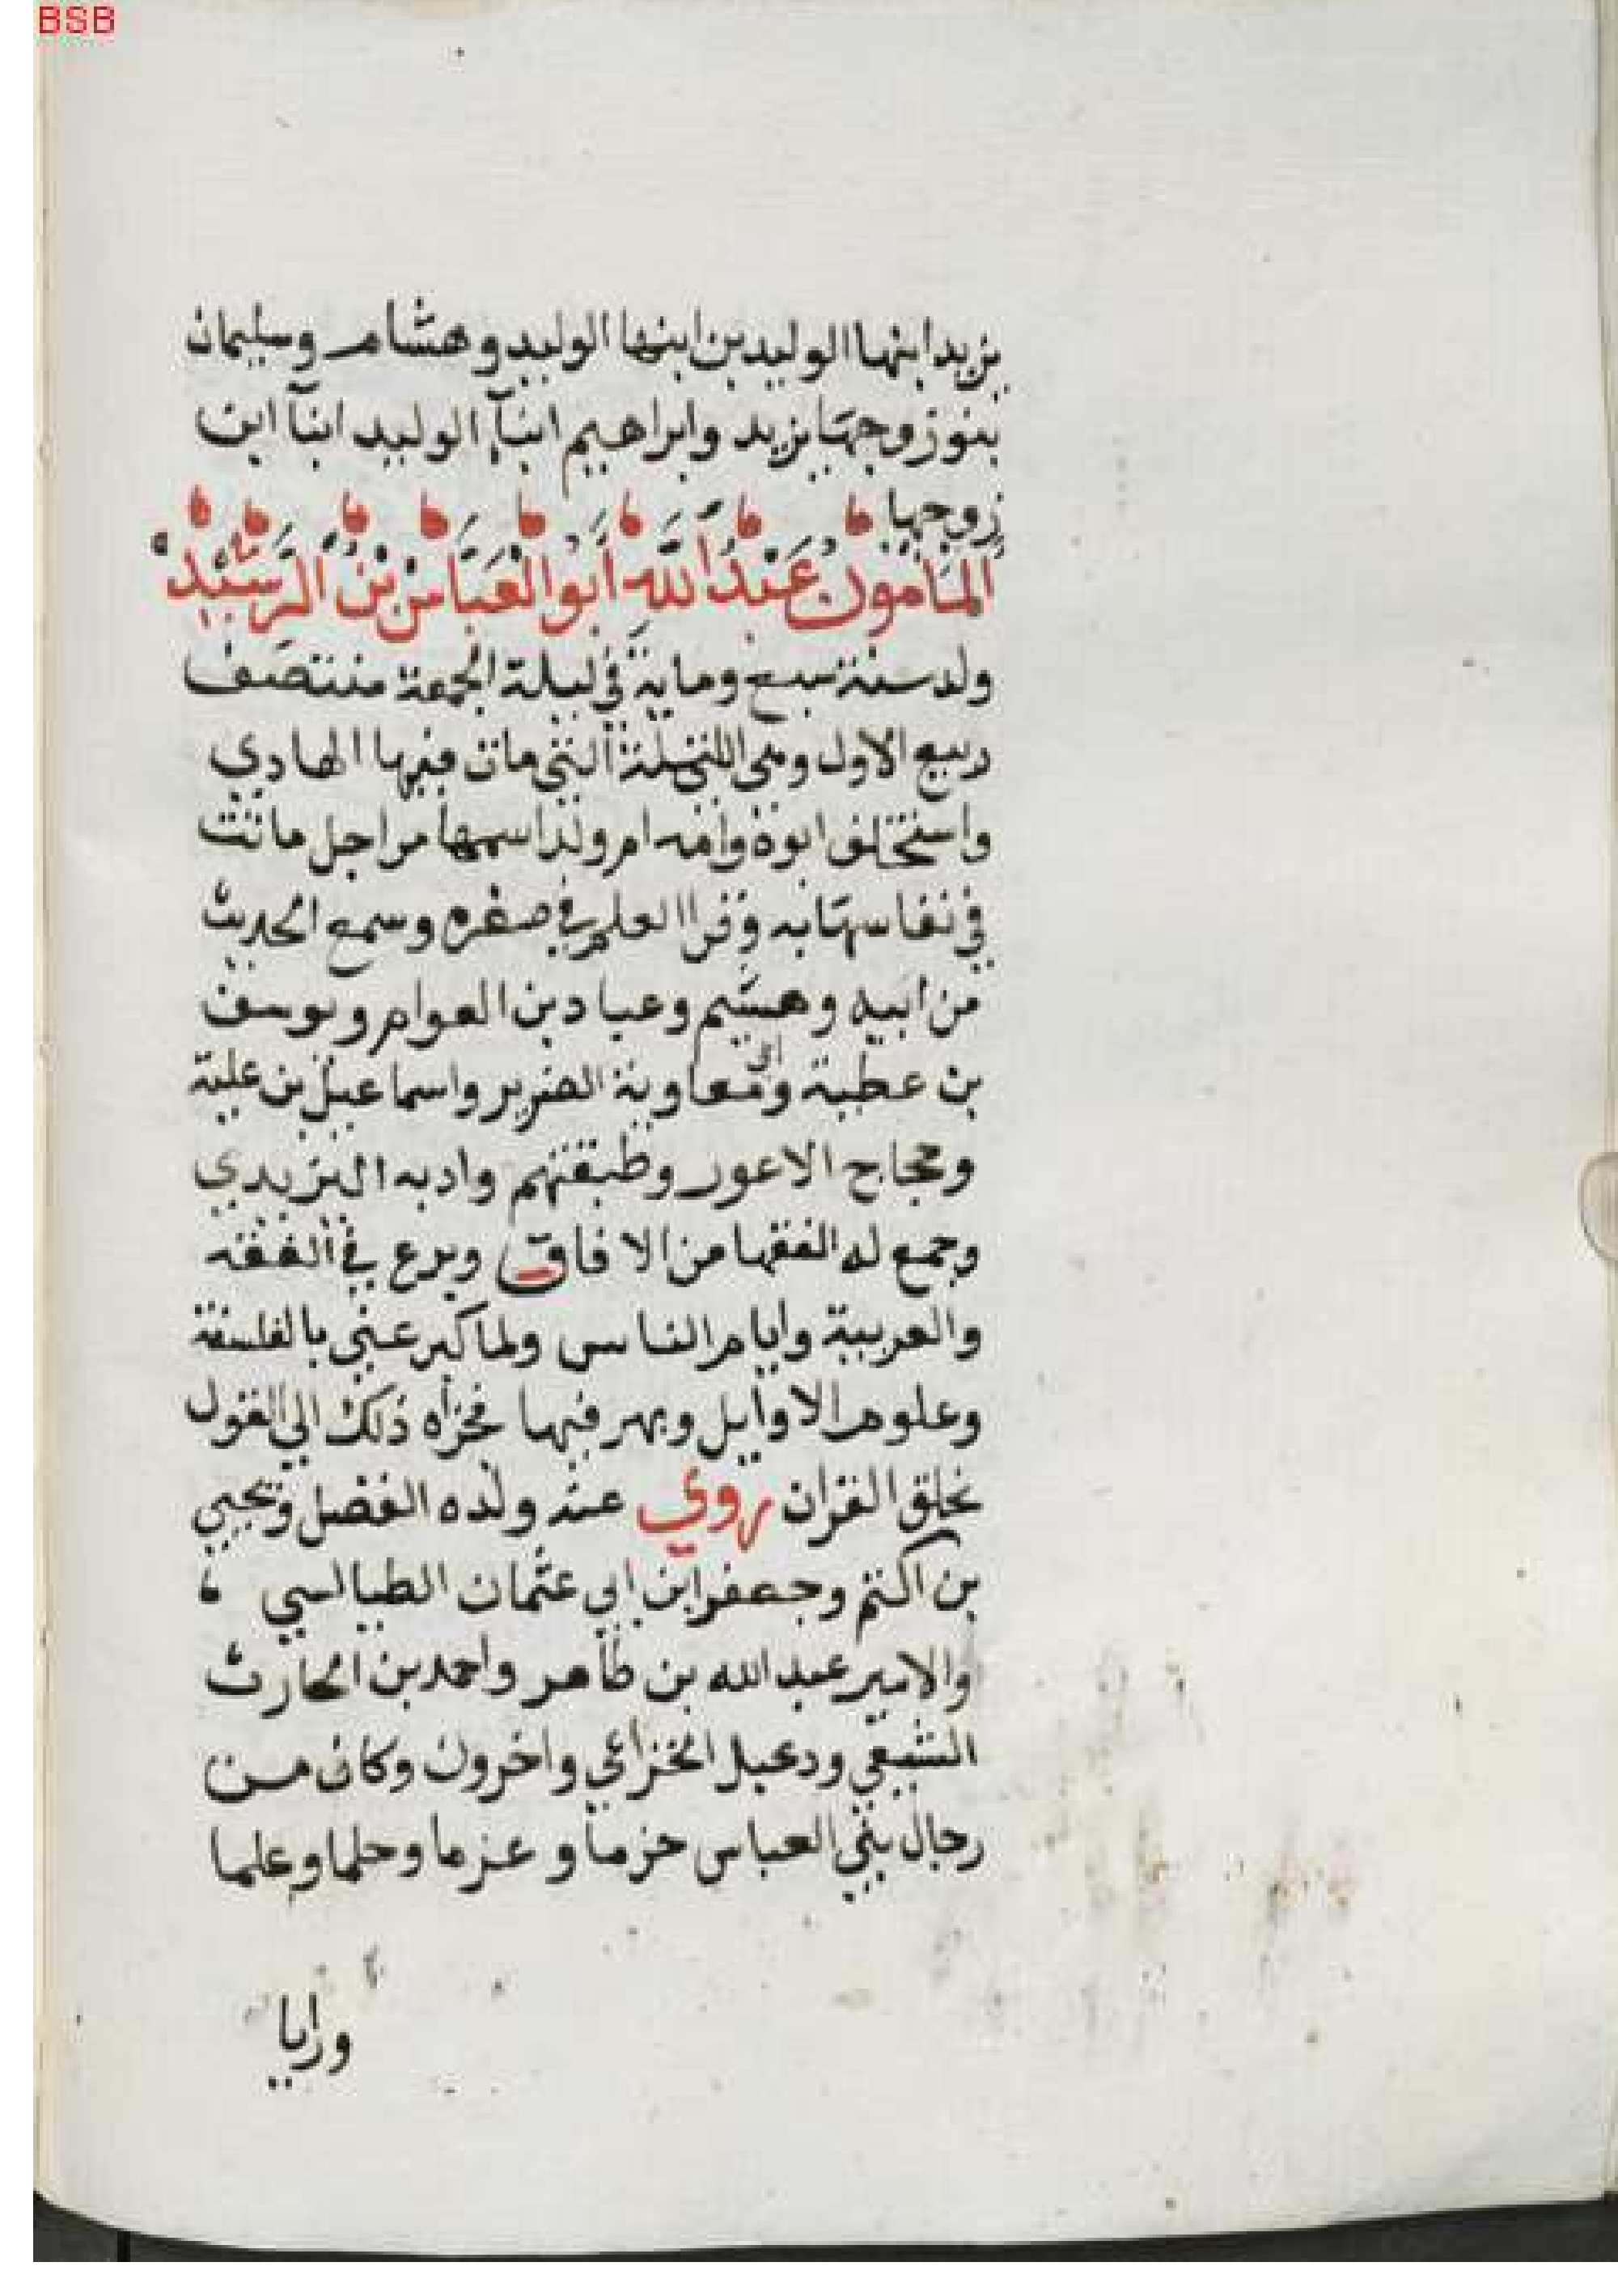 BSB
يزيد ابنها الوليد بن ابنها الوليد وهشام وسليمان
بنو زوجها يزيد وابراهيم ابنآ الوليد ابنآ ابن
زوجها
المَأمون عَبدُ اللَّه أبو العَبَّاس بنُ الرَّشيد
ولد سنة سبع وماية في ليلة الجمعة منتصَف
ربيع الاول وهي الليلة التي مات فيها الهادي
واستخلف ابوه وامه ام ولد اسمها مراجل ماتت
في نفاسها به وقرا العلم في صغره وسمع الحديث
من ابيه وهشيم وعباد بن العوام ويوسف
بن عطية وابي معاوية الضرير واسماعيل بن علية
وحجاج الاعور وطبقتهم وادبه اليزيدي
وجمع له الفقها من الافاق وبرع في الفقه
والعربية وايام الناس ولما كبر عني بالفلسفة
وعلوم الاوايل وبهر فيها فجزاه ذلك الي القول
بخلق القران روي عنه ولده الفضل ويحيي
بن اكتم وجعفر ابن ابي عثمان الطيالسي
والامير عبد الله بن طاهر واحمد بن الحارث
الشيعي ودعبل الخزاعي واخرون وكان من
رجال بني العباس حزما وعزما وحلما وعلما
ورايا